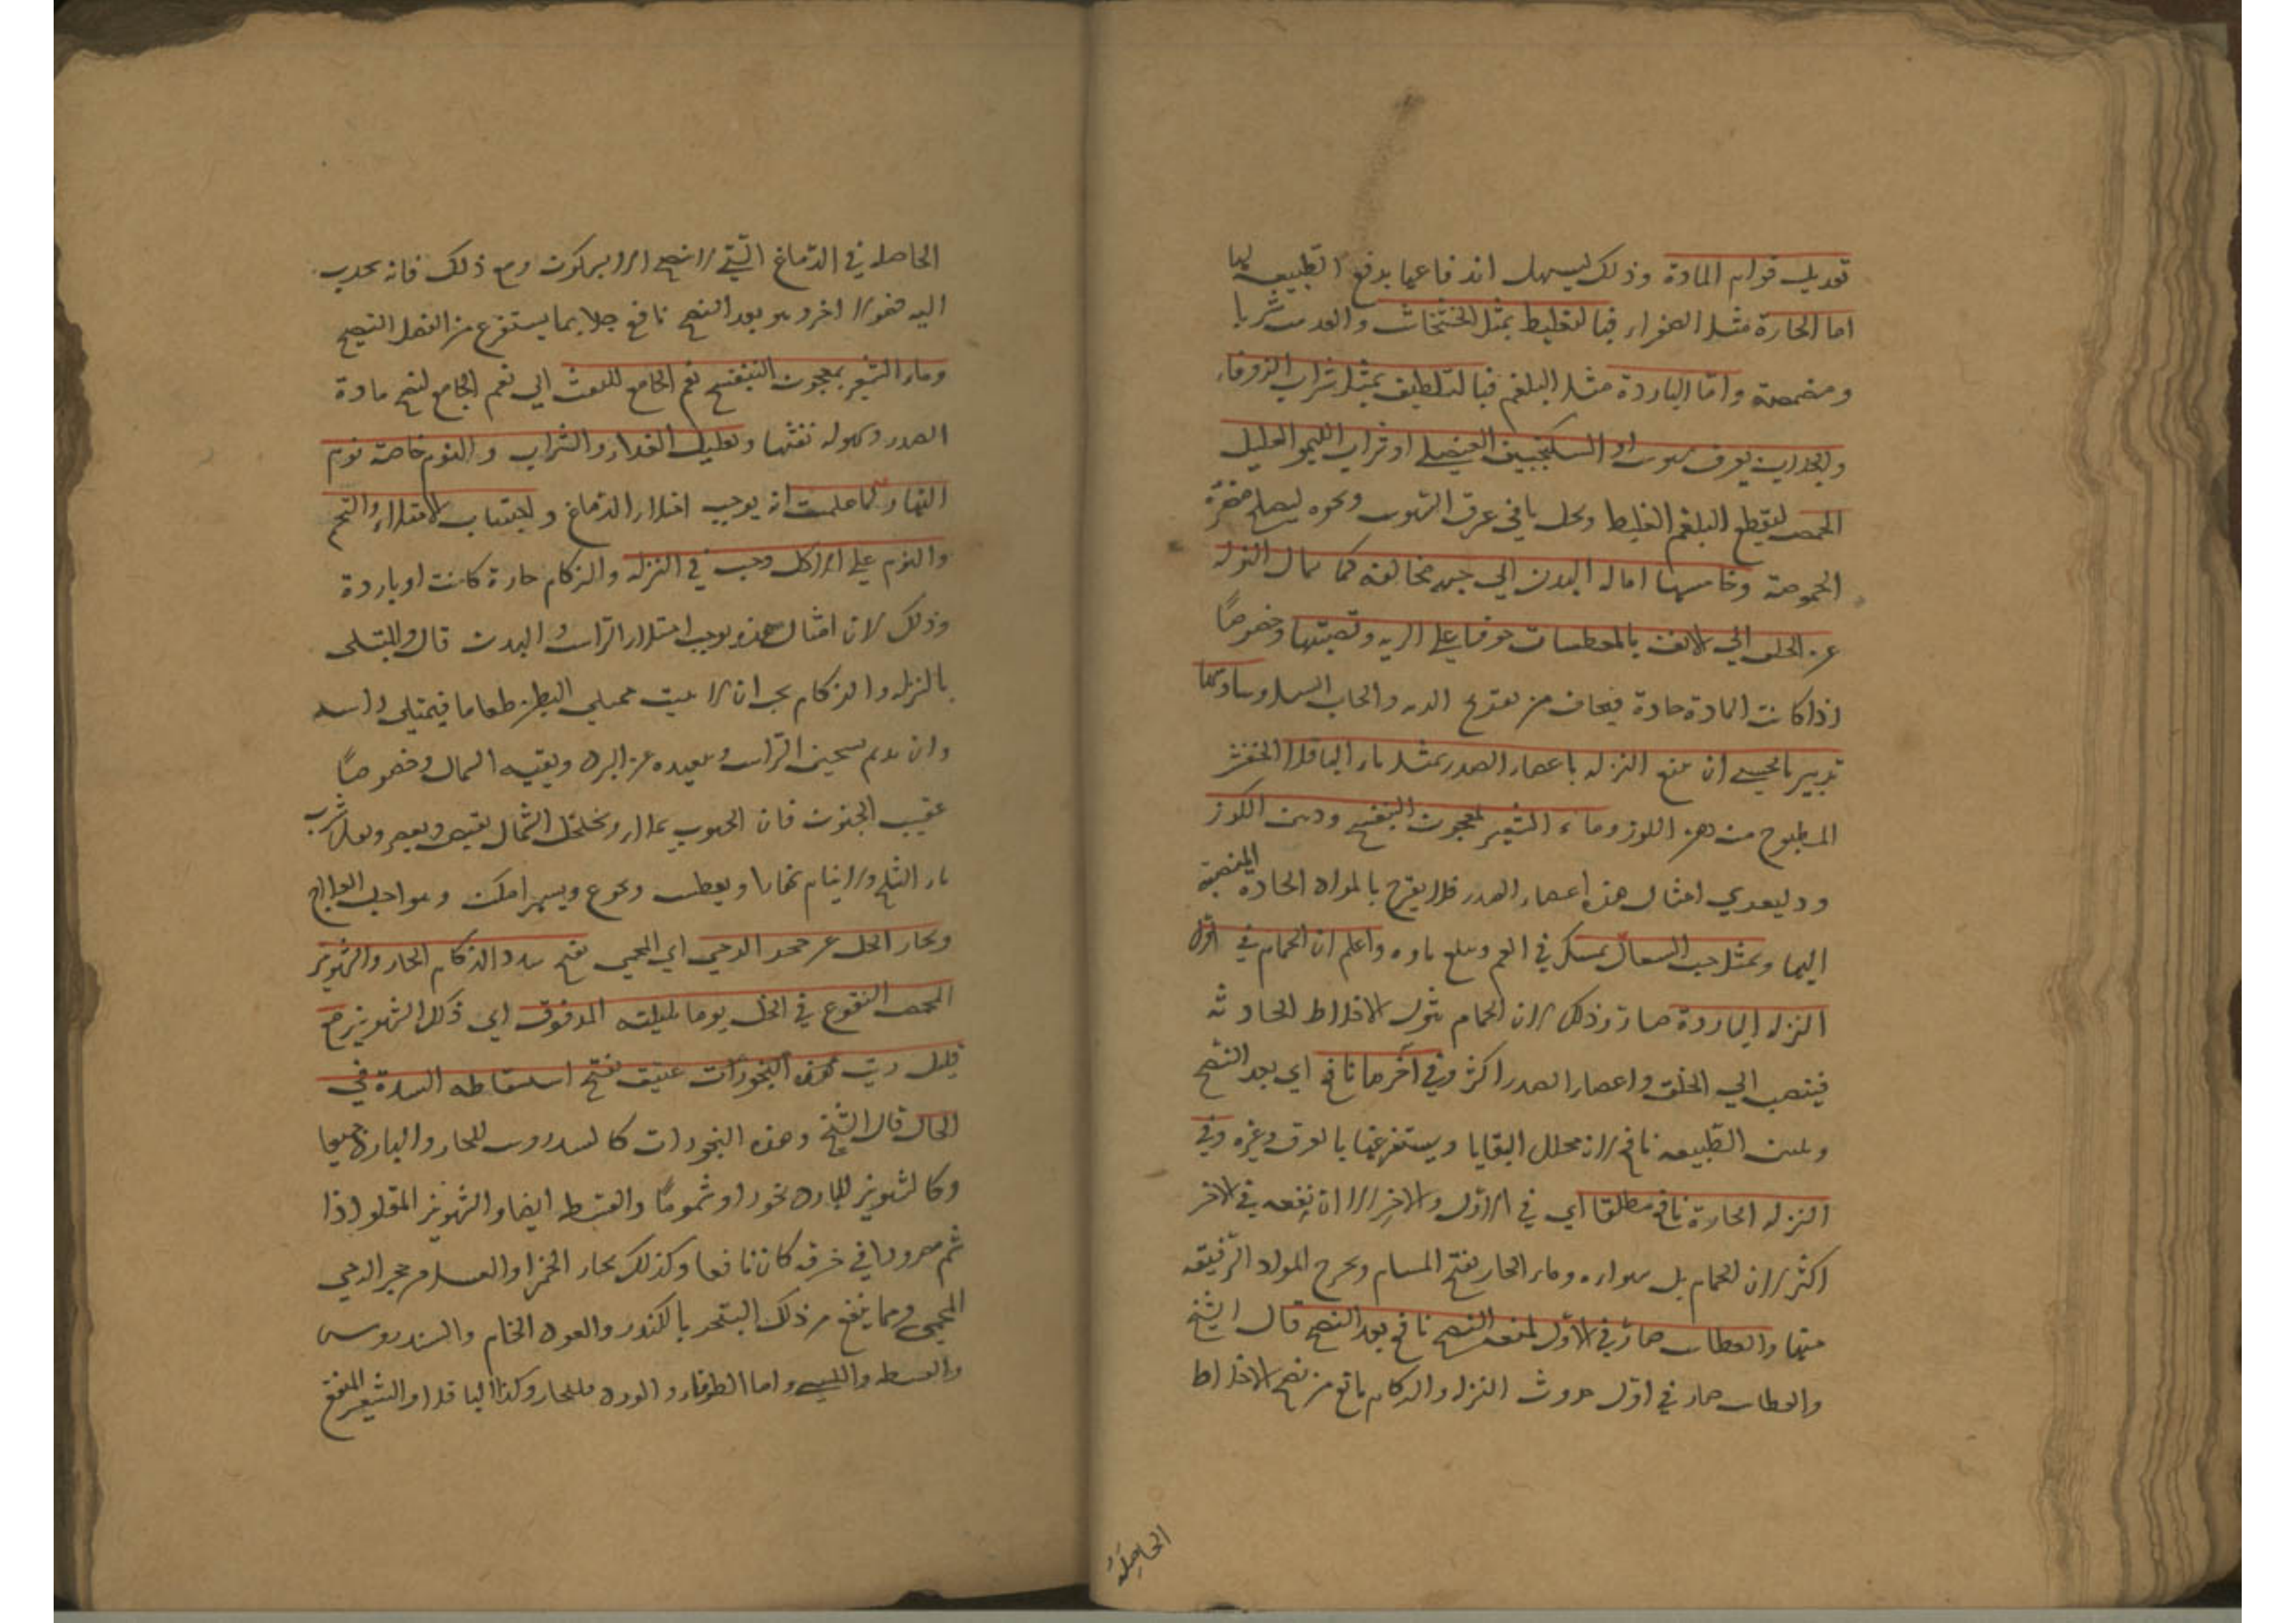 تعديل قوام المادة وذلك ليسهل اندفاعها بدفع الطبيعه لها
اما الحارة مثل الصفراء فبالتغليظ بمثل الخشخاش والعدس شربا
ومضمضة واما الباردة مثل البلغم فبالتلطيف بمثل شراب الزوفاء
او السكنجبين العنصلي او شراب الليمو القليل
الحمض ليقطع البلغم الغليظ ونحوه ليصلح مضرة
الحموضة وخامسها امالة البدن الي جهة مخالفه كما يمال النزله
عن الحلق الي الانف بالمعطسات خوفا علي الريه وقصبتها وخصوصا
اذا كانت المادة حادة فيخاف من تقريح الريه والحاب السل وسادسها
تدبير ما يخشي ان تمنع النزله باعضاء الصدر بمثل ماء الباقلا
المطبوخ من دهن اللوز وماء الشعير بمعجون البنفسج ودهن اللوز
امثال هذه اعضاء الصدر فلا يقرح بالمواد الحادة المنصبة
اليها وبمثل حب السعال يمسك في الفم ويبلع ماوه واعلم ان الحمام في اول
النزله الباردة ضار وذلك لان الحمام يثور الاخلاط الحادثه
فينصب الي الحلق واعضاء الصدر اكثر وفي آخرها نافع اي بعد النضج
الطبيعه نافع لانه يحلل البقايا ويستفرغها بالعرق وغيره وفي
النزله الحارة نافع مطلقا اي في الاول والاخر الا ان نفعه في الاخر
اكثر لان الحمام بل بهوائه وماء الحار يفتح المسام ويخرج المواد الرقيقه
منها والعطاس ضار في الاول لمنعه النضج نافع بعد النضج قال الشيخ
والعطاس ضار في اول حدوث النزله والزكام مانع من نضج الاخلاط
الحاصلة
الحاصله في الدماغ التي لا تنضج الا بسكون ومع ذلك فانه يجذب
اليه فضولا اخر وهو بعد النضج نافع جدا بما يستفرغ من الفضل النضيج
وماء الشعير بمعجون البنفسج نعم الجامع للنفث اي نعم الجامع لنضج مادة
الصدر وسهوله نفثها وتقليل الغذاء والشراب والنوم خاصة نوم
النهار كما علمت انه يوجب امتلاء الدماغ واجتناب الامتلاء والتخم
والنوم علي الاكل وجب في النزله والزكام حارة كانت او باردة
وذلك لان امثال هذه يوجب امتلاء الراس والبدن قال والمبتلى
بالنزله والزكام يجب ان لا يبيت ممتلي البطن طعاما فيمتلي راسه
وان يديم تسخين الراس ويبعده عن البرد ويقيه الشمال وخصوصا
عقيب الجنوب فان الجنوب يملا ويخلخل والشمال يقبض ويعصر ويقل شرب
ماء الثلج ولا ينام نهارا ويعطش ويجوع ويسهر امكن
وبخار الخل عن حجر الرحي اي المحمي يفتح سدد الزكام الحار والشونيز
المحمص المنقوع في الخل يوما بليلته المدقوق اي ذلك الشونيز مع
قليل زيت عتيق يفتح استسعاطه السدة في
الحال قال الشيخ وهذه البخورات كالسندروس للحار والبارد جميعا
وكالشونيز للبارد بخورا وشموما والقسط ايضا والشونيز المقلو اذا
شم مصرورا في خرقه كان نافعا وكذلك بخار الخمر او العسل من حجر الرحي
المحمي ومما ينفع من ذلك التبخر بالكندر والعود الخام والسندروس
والقسط واما الطرفاء والورد فللحار وكذا الباقلا والشعير المنقع